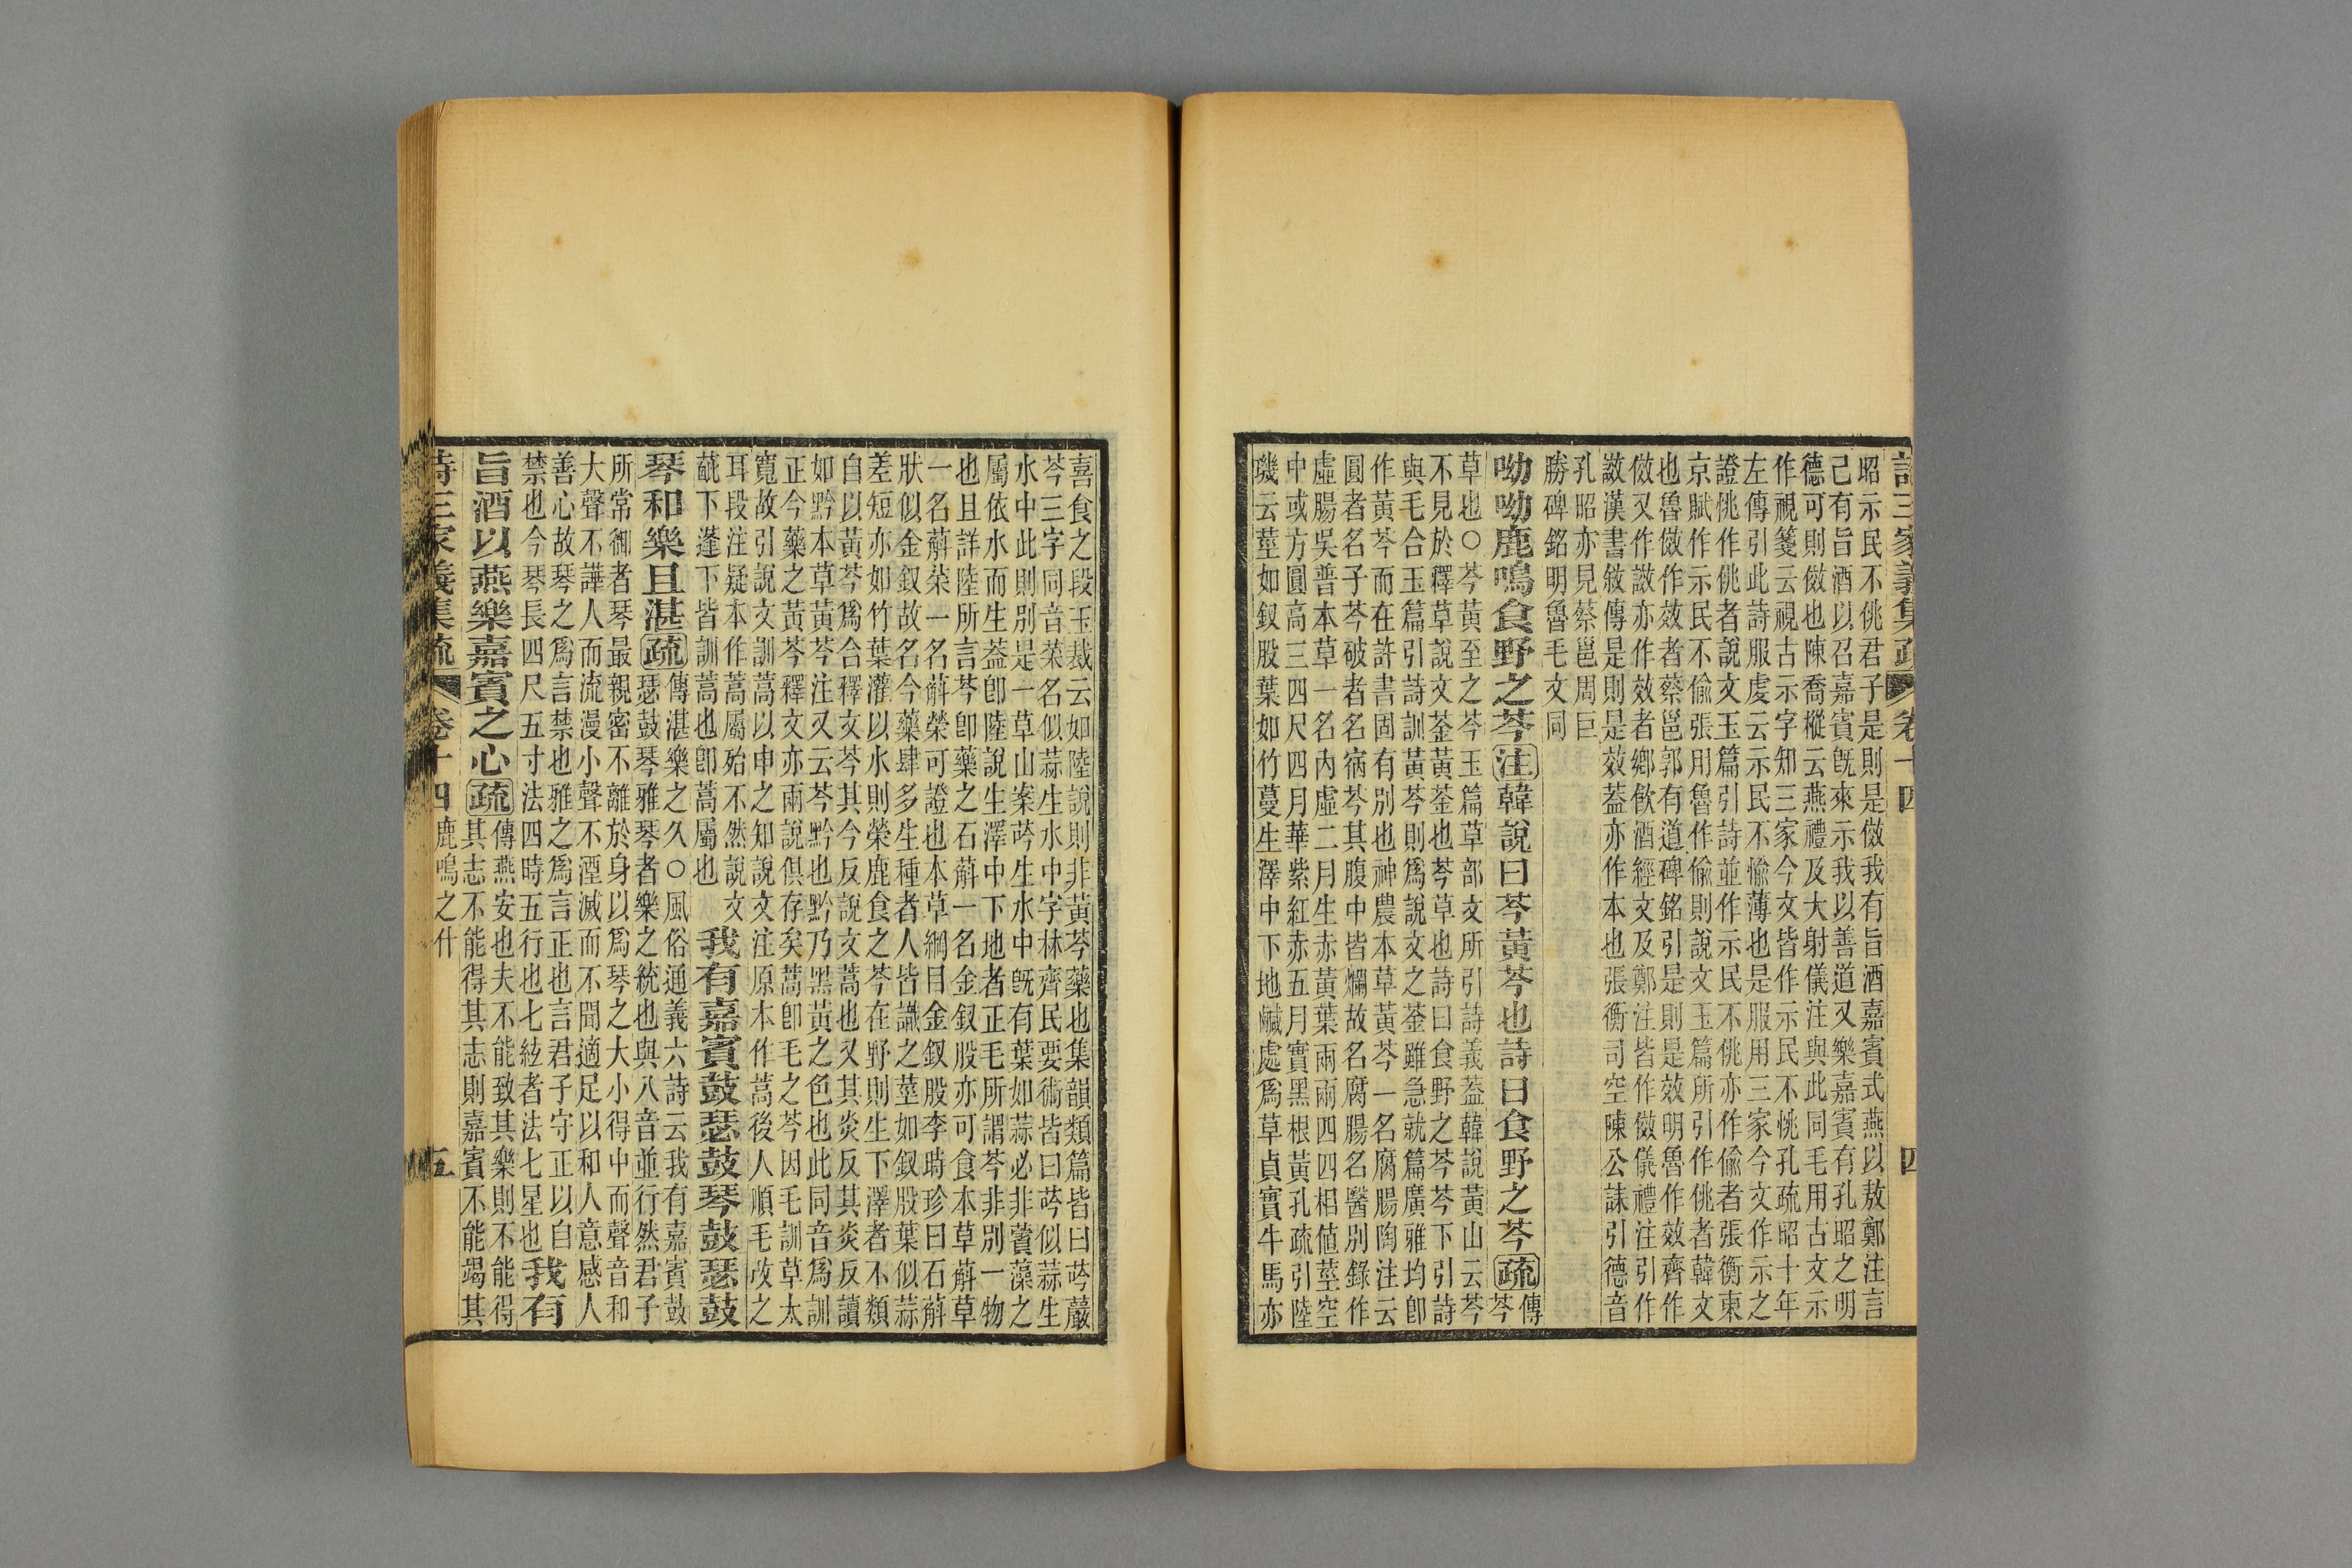 詩三家義集疏 卷十四 四
昭示民不佻君子是則是傚我有旨酒嘉賓式燕以敖鄭注言
己有旨酒以召嘉賓旣來示我以善道又樂嘉賓有孔昭之明
德可則傚也陳喬樅云燕禮及大射儀注與此同毛用古文示
作視箋云視古示字知三家今文皆作示民不恌孔疏昭十年
左傳引此詩服虔云示民不愉薄也是服用三家今文作示之
證恌作佻者說文玉篇引詩並作示民不佻亦作偷者張衡東
京賦作示民不偷張用魯作偷則說文玉篇所引作佻者韓文
也魯傚作效者蔡邕郭有道碑銘引是則是效明魯作效齊作
傚又作詨亦作效者鄉飲酒經文及鄭注皆作傚儀禮注引作
詨漢書敘傳是則是效葢亦作本也張衡司空陳公誄引德音
孔昭亦見蔡邕周巨
勝碑銘明魯毛文同
呦呦鹿鳴食野之芩注韓說曰芩黃芩也詩曰食野之芩疏傳芩
草也○芩黃至之芩玉篇草部文所引詩義葢韓說黃山云芩
不見於釋草說文莶黃莶也芩草也詩曰食野之芩芩下引詩
與毛合玉篇引詩訓黃芩則爲說文之莶雖急就篇廣雅均卽
作黃芩而在許書固有別也神農本草黃芩一名腐腸陶注云
圓者名子芩破者名宿芩其腹中皆爛故名腐腸名醫別錄作
虛腸吳普本草一名內虛二月生赤黃葉兩兩四四相値莖空
中或方圓高三四尺四月華紫紅赤五月實黑根黃孔疏引陸
璣云莖如釵股葉如竹蔓生澤中下地鹹處爲草貞實牛馬亦
喜食之段玉裁云如陸說則非黃芩藥也集韻類篇皆曰䓄䕾
芩三字同音菜名似蒜生水中字林齊民要術皆曰䓄似蒜生
水中此則別是一草山案䓄生水中旣有葉如蒜必非薲藻之
屬依水而生葢卽陸說生澤中下地者正毛所謂芩非別一物
也且詳陸所言芩卽藥之石蔛一名金釵股亦可食本草蔛草
一名蔛榮一名蔛榮可證也本草綱目金釵股李時珍曰石蔛
狀似金釵故名今藥肆多生種者人皆識之莖如釵股葉似蒜
差短亦如竹葉灌以水則榮鹿食之芩在野則生下澤者不類
自以黃芩爲合釋文芩其今反說文蒿也又其炎反其炎反讀
如黔本草黃芩注又云芩黔也黔乃黑黃之色也此同音爲訓
正今藥之黃芩釋文亦兩說俱存矣蒿卽毛之芩因毛訓草太
寬故引說文訓蒿以申之知說文注原本作蒿後人順毛改之
耳段注疑本作蒿屬殆不然說文
蔽下蓬下皆訓蒿也卽蒿屬也 我有嘉賓鼓瑟鼓琴鼓瑟鼓
琴和樂且湛疏傳湛樂之久○風俗通義六詩云我有嘉賓鼓
瑟鼓琴雅琴者樂之統也與八音並行然君子
所常御者琴最親密不離於身以爲琴之大小得中而聲音和
大聲不譁人而流漫小聲不湮滅而不聞適足以和人意感人
善心故琴之爲言禁也雅之爲言正也言君子守正以自
禁也今琴長四尺五寸法四時五行也七絃者法七星也 我有
旨酒以燕樂嘉賓之心疏傳燕安也夫不能致其樂則不能得
其志不能得其志則嘉賓不能竭其
詩三家義集疏 卷十四 鹿鳴之什 五